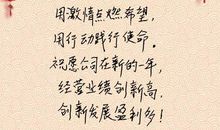 用激情点燃希望，
用行动践行使命。
祝愿公司在新的一年，
经营业绩创新高，
创新发展盈利多！